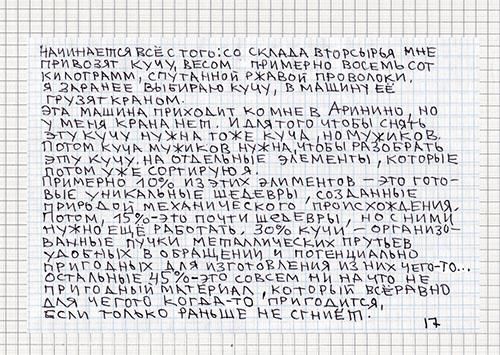 НАЧИНАЕТСЯ ВСЁ С ТОГО: СО СКЛАДА ВТОРСЫРЬЯ МНЕ
ПРИВОЗЯТ КУЧУ, ВЕСОМ ПРИМЕРНО ВОСЕМЬСОТ
КИЛОГРАММ, СПУТАННОЙ РЖАВОЙ ПРОВОЛОКИ.
Я ЗАРАНЕЕ ВЫБИРАЮ КУЧУ, В МАШИНУ ЕЁ
ГРУЗЯТ КРАНОМ.
ЭТА МАШИНА ПРИХОДИТ КО МНЕ В АРИНИНО, НО
У МЕНЯ КРАНА НЕТ. И ДЛЯ ТОГО ЧТОБЫ СНЯТЬ
ЭТУ КУЧУ НУЖНА ТОЖЕ КУЧА, НО МУЖИКОВ.
ПОТОМ КУЧА МУЖИКОВ НУЖНА, ЧТОБЫ РАЗОБРАТЬ
ЭТУ КУЧУ НА ОТДЕЛЬНЫЕ ЭЛЕМЕНТЫ, КОТОРЫЕ
ПОТОМ УЖЕ СОРТИРУЮ Я.
ПРИМЕРНО 10% ИЗ ЭТИХ ЭЛИМЕНТОВ – ЭТО ГОТО-
ВЫЕ УНИКАЛЬНЫЕ ШЕДЕВРЫ, СОЗДАННЫЕ
ПРИРОДОЙ МЕХАНИЧЕСКОГО ПРОИСХОЖДЕНИЯ.
ПОТОМ, 15% – ЭТО ПОЧТИ ШЕДЕВРЫ, НО С НИМИ
НУЖНО ЕЩЁ РАБОТАТЬ. 30% КУЧИ – ОРГАНИЗО-
ВАННЫЕ ПУЧКИ МЕТАЛЛИЧЕСКИХ ПРУТЬЕВ
УДОБНЫХ В ОБРАЩЕНИИ И ПОТЕНЦИАЛЬНО
ПРИГОДНЫХ ДЛЯ ИЗГОТОВЛЕНИЯ ИЗ НИХ ЧЕГО-ТО...
ОСТАЛЬНЫЕ 45% – ЭТО СОВСЕМ НИ НА ЧТО НЕ
ПРИГОДНЫЙ МАТЕРИАЛ, КОТОРЫЙ ВСЕРАВНО
ДЛЯ ЧЕГОТО КОГДА-ТО ПРИГОДИТСЯ,
ЕСЛИ ТОЛЬКО РАНЬШЕ НЕ СГНИЁТ.
17